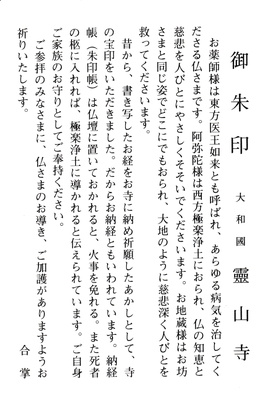 御朱印　大和國　靈山寺
お薬師様は東方医王如来とも呼ばれ、あらゆる病気を治してく
ださる仏さまです。阿弥陀様は西方極楽浄土におられ、仏の知恵と
慈悲を人びとにやさしくそそいでくださいます。お地蔵様はお坊
さまと同じ姿でどこにでもおられ、大地のように慈悲深く人びとを
救ってくださいます。
昔から、書き写したお経をお寺に納め祈願したあかしとして、寺
の宝印をいただきました。だからお納経ともいわれています。納経
帳（朱印帳）は仏壇に置いておかれると、火事を免れる。また死者
の柩に入れれば、極楽浄土に導かれると伝えられています。ご自身
ご家族のお守りとしてご奉持ください。
ご参拝のみなさまに、仏さまのお導き、ご加護がありますようお
祈りいたします。
合掌